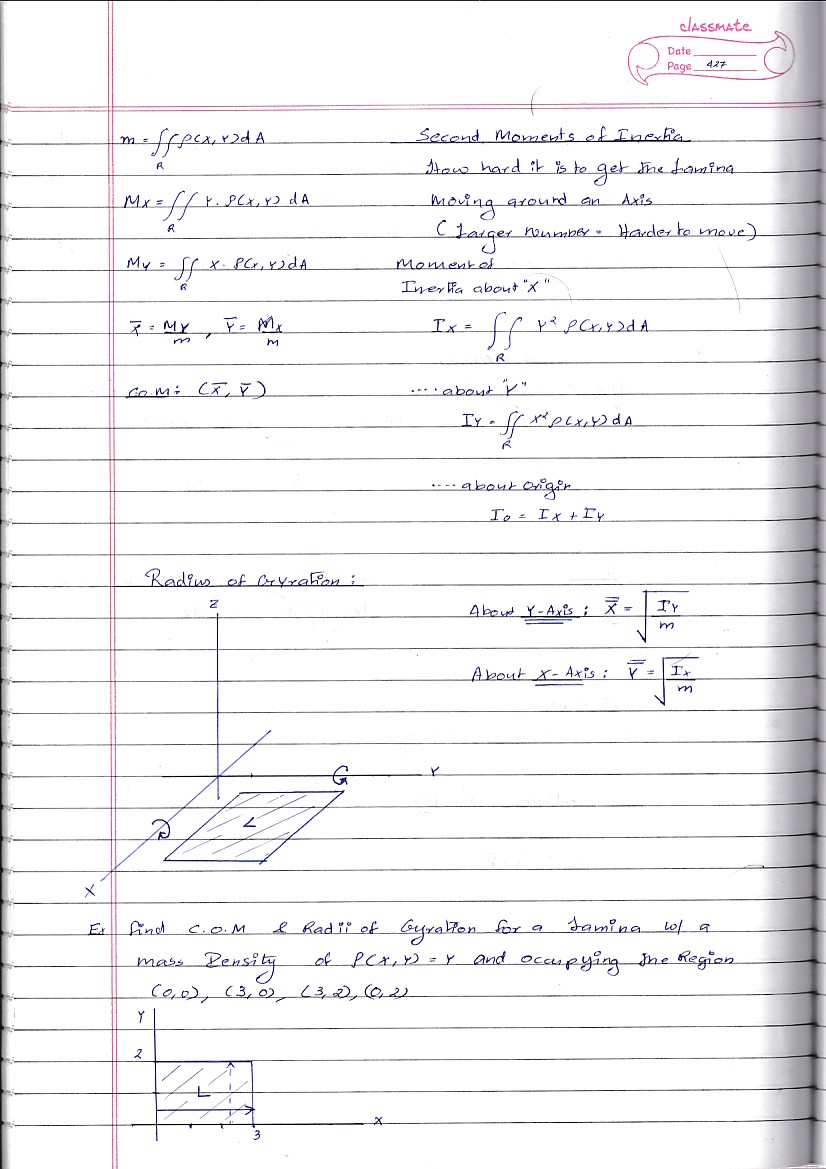 classmate
Date
Page 427
m = ∬_R ρ(x,y) dA
Mx = ∬_R y · ρ(x,y) dA
My = ∬_R x · ρ(x,y) dA
x̄ = My/m , ȳ = Mx/m
C.O.M: (x̄, ȳ)
Second Moments of Inertia
How hard it is to get the Lamina
Moving around an Axis
(Larger Number = Harder to move)
Moment of
Inertia about "X"
Ix = ∬_R y² ρ(x,y) dA
.... about "Y"
Iy = ∬_R x² ρ(x,y) dA
.... about origin
I₀ = Ix + Iy
Radius of Gyration :
About Y-Axis : x̿ = √(Iy/m)
About X-Axis : y̿ = √(Ix/m)
Z
Y
L
X
Ex find C.O.M & Radii of Gyration for a Lamina w/ a
mass Density of ρ(x,y) = y and occupying the Region
(0,0), (3,0), (3,2), (0,2)
Y
2
L
X
3